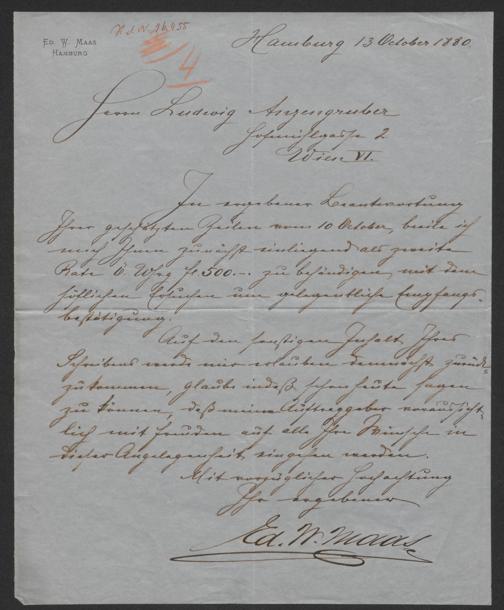 ED. W. MAAS
HAMBURG
4
Hamburg 13 October 1880.
Herrn Ludwig Anzengruber
Hofmühlgasse 2
Wien VI.
In ergebener Beantwortung
Ihrer geschätzten Zeilen vom 10 October, beeile ich
mich Ihnen zunächst einliegend als zweite
Rate Ö. Whg fl. 500.-. zu behändigen, mit dem
höflichen Ersuchen um gelegentliche Empfangs-
bestätigung.
Auf den sonstigen Inhalt Ihres
Schreibens werde mir erlauben demnächst zurück-
zukommen, glaube indeß schon heute sagen
zu können, daß mein Auftraggeber voraussicht-
lich mit Freuden auf alle Ihre Wünsche in
dieser Angelegenheit eingehen werden.
Mit vorzüglicher Hochachtung
Ihr ergebener
Ed. W. Maas